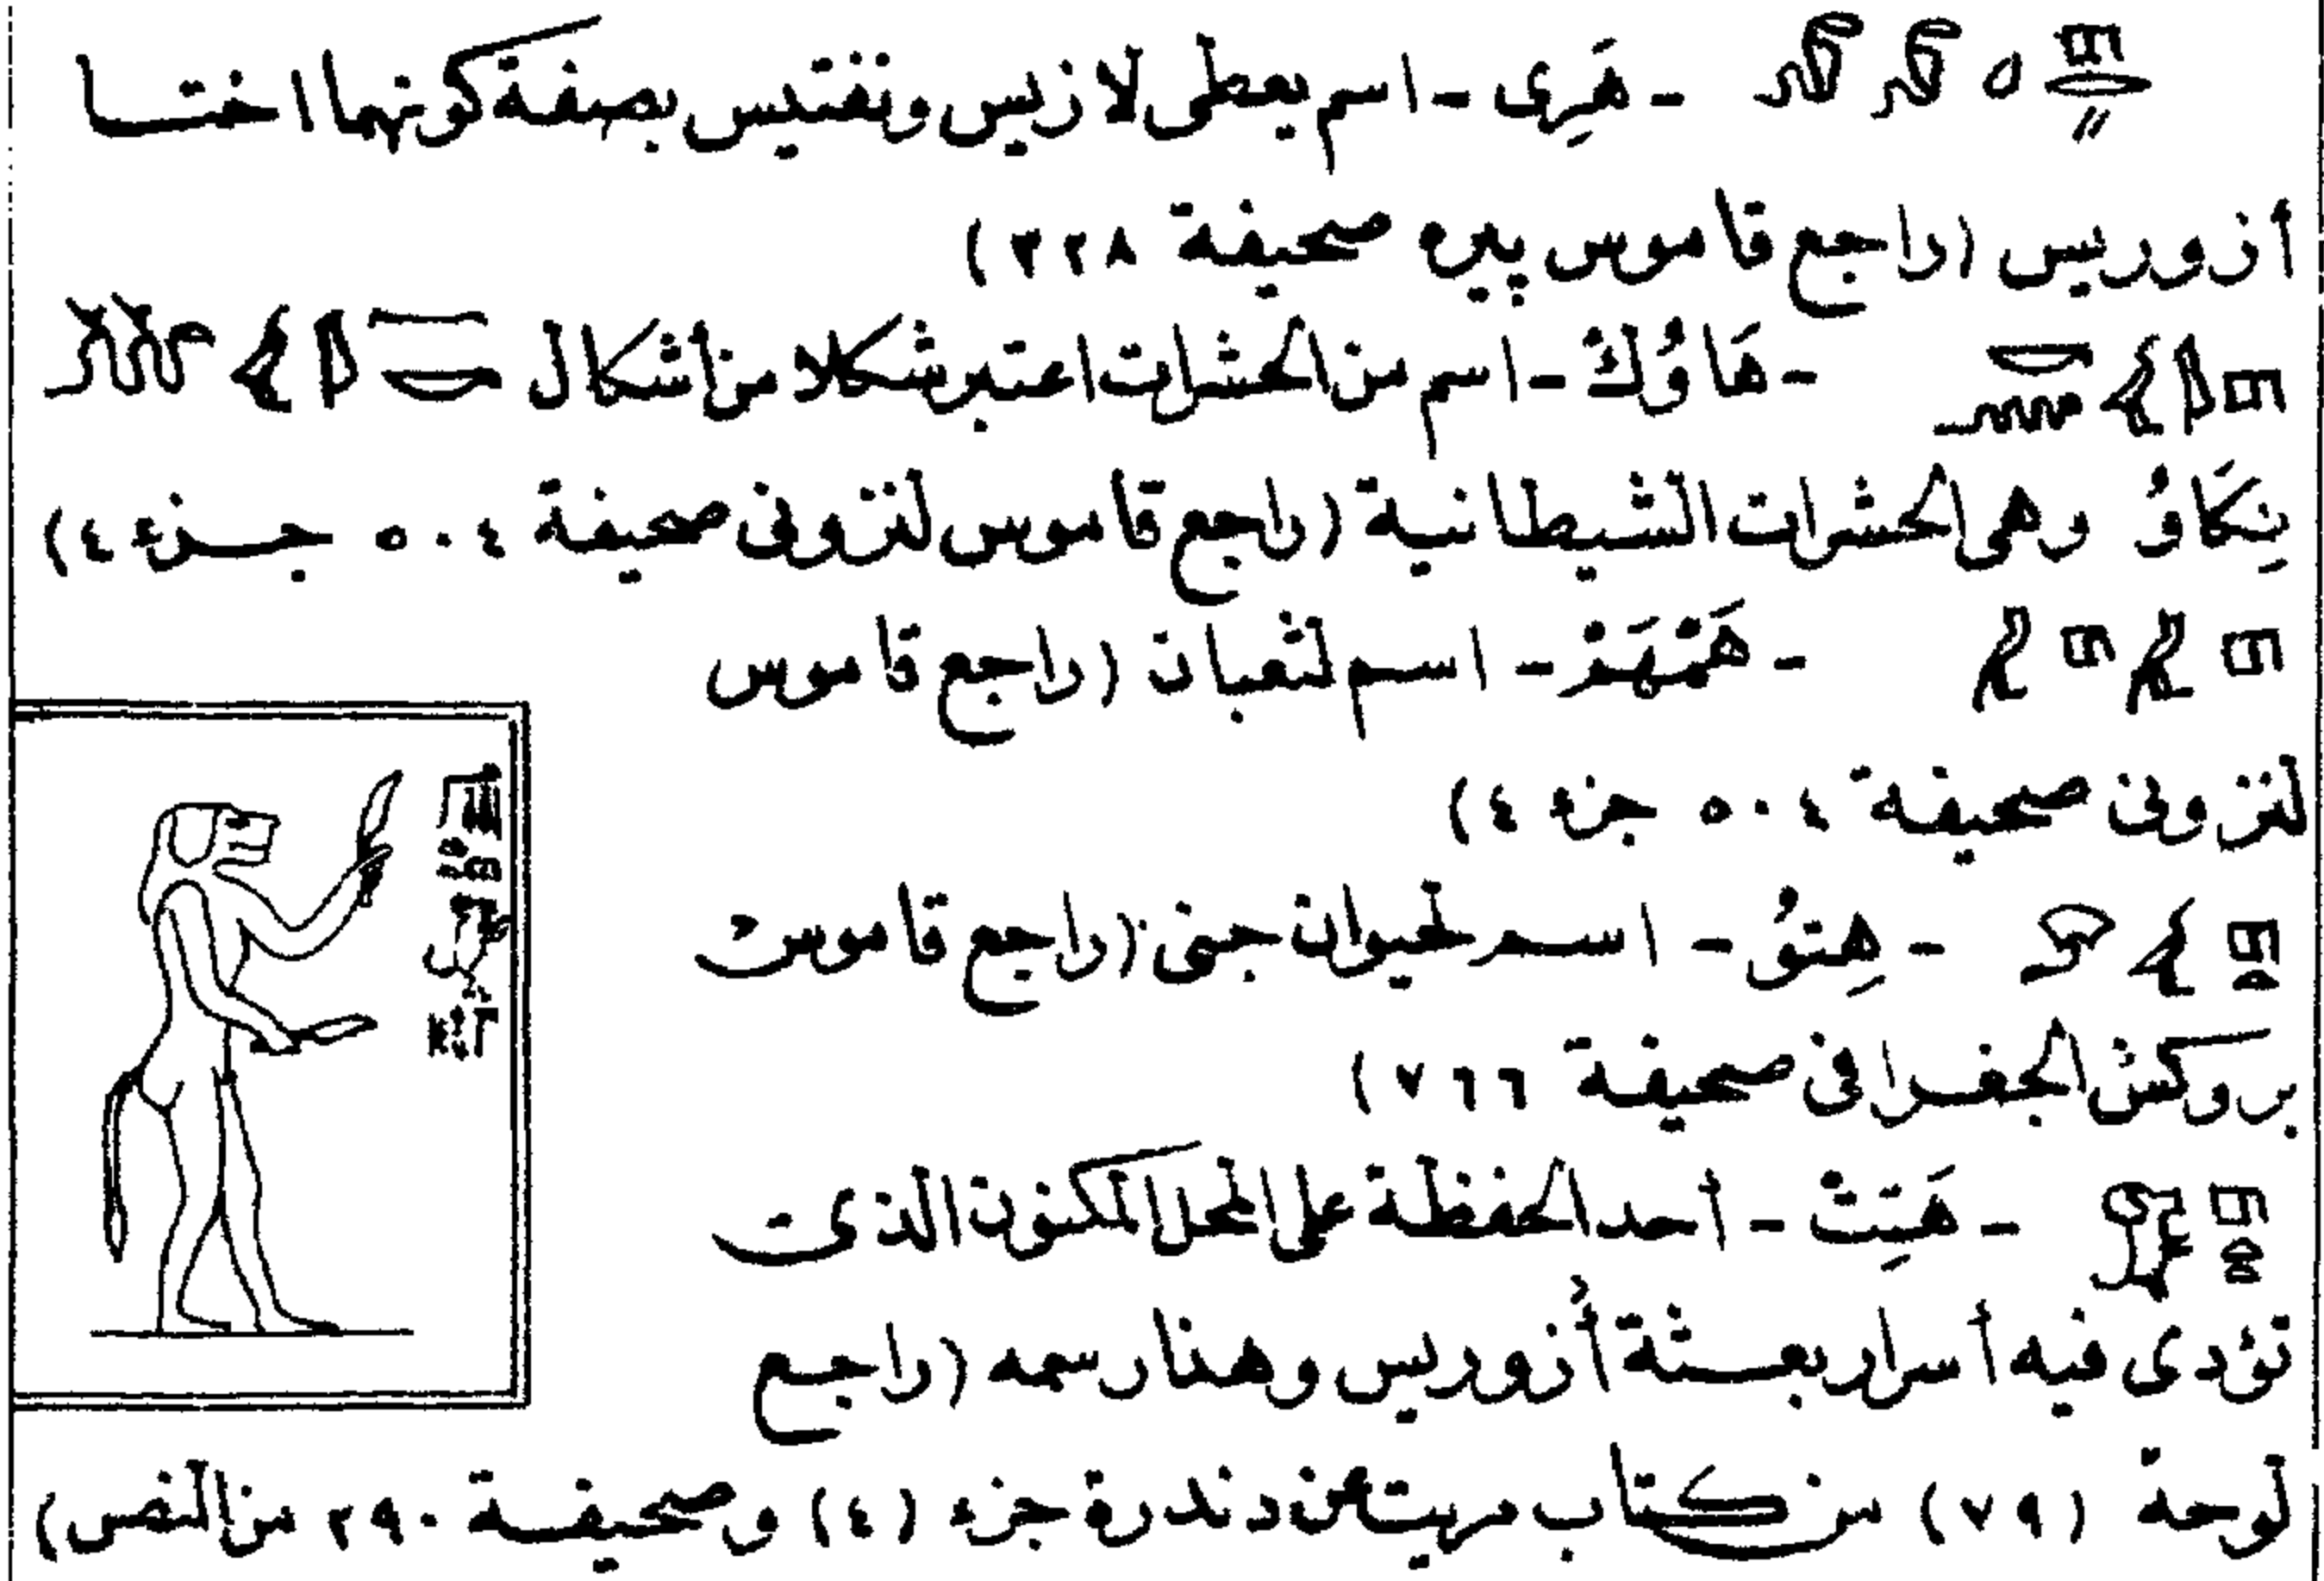 - هَرِى - اسم يعطى لازيس ونفتيس بصفة كونهما اختا
أزوريس (راجع قاموس پيره صحيفة ٣٢٨)
- هَاوُكْ - اسم من الحشرات اعتبر شكلا من أشكال
نِكَاوُ وهى الحشرات الشيطانية (راجع قاموس لنزونى صحيفة ٥٠٤ جزء ٤)
- هَمْهَمْ - اسم لثعبان (راجع قاموس
لنزونى صحيفة ٥٠٤ جزء ٤)
- هِتوُ - اسم لحيوان جنى (راجع قاموس
بروكش الجغرافى صحيفة ٧٦٦)
- هَتِتْ - أحد الحفظة على المحل المكنون الذى
تؤدى فيه أسرار بعثة أُزوريس وهذا رسمه (راجع
لوحة (٧٩) من كتاب مريت عن دندرة جزء (٤) وصحيفة ٢٩٠ من النص)